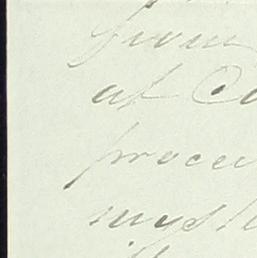 from
at Co
procee
myste